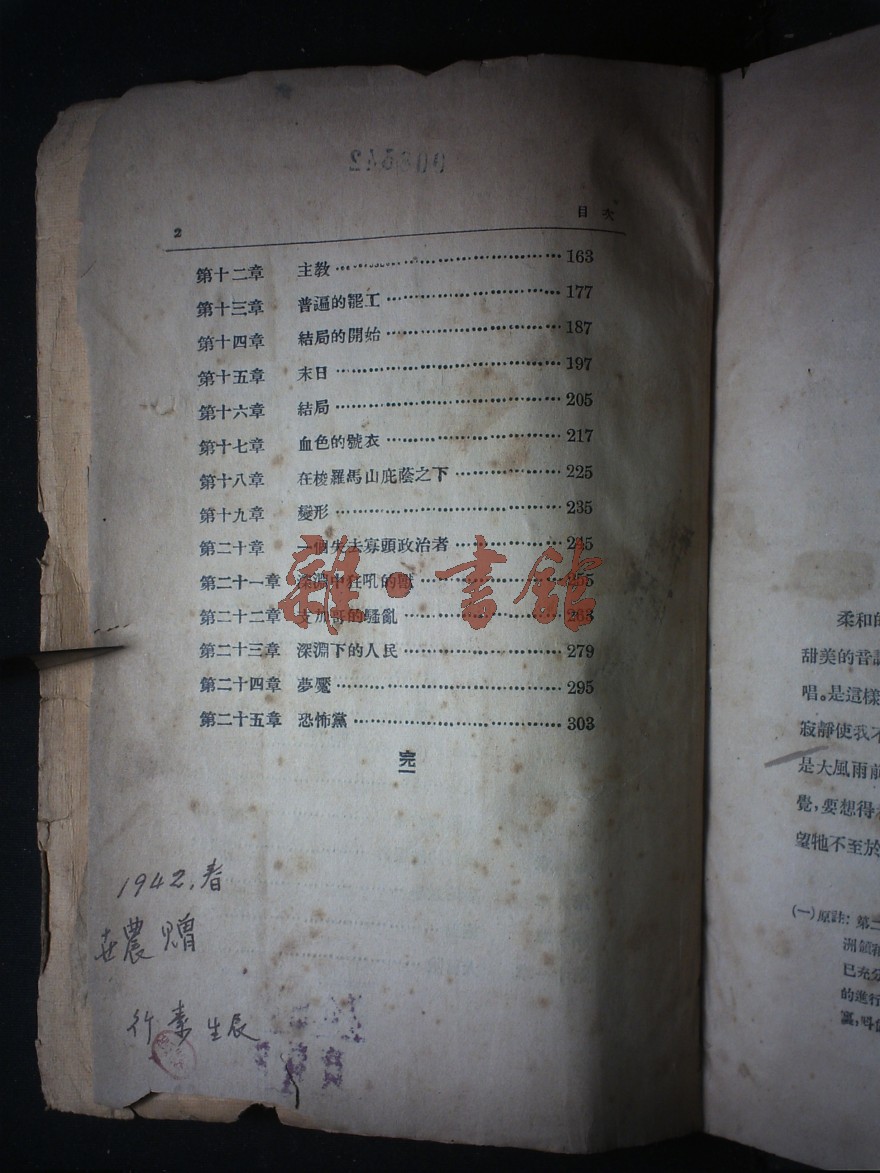 008642
2 目次
第十二章 主教 163
第十三章 普遍的罷工 177
第十四章 結局的開始 187
第十五章 末日 197
第十六章 結局 205
第十七章 血色的號衣 217
第十八章 在梭羅馬山庇蔭之下 225
第十九章 變形 235
第二十章 一個失去寡頭政治者 245
第二十一章 深淵中狂吼的獸 255
第二十二章 支加哥的騷亂 263
第二十三章 深淵下的人民 279
第二十四章 夢魘 295
第二十五章 恐怖黨 303
完
雜·書館
1942.春
農贈
行素生辰
柔和的
甜美的昔
唱。是這樣
寂靜使我不
是大風雨前
覺,要想得
望牠不至於
(一)原註:第二
洲領
已充分
的進行